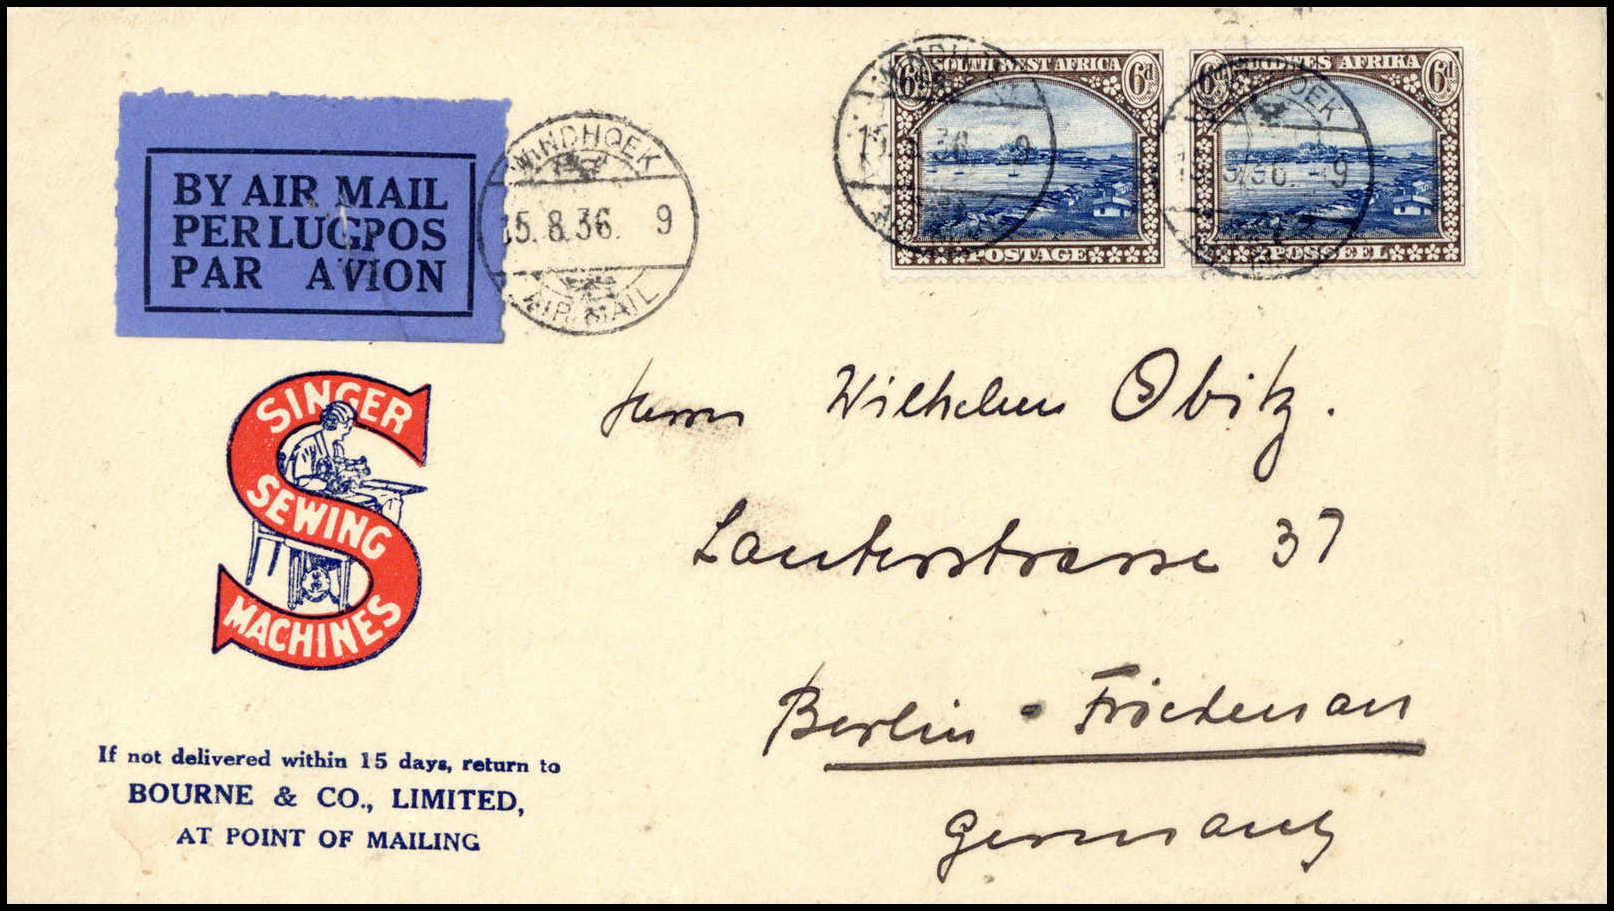 6d SOUTH WEST AFRICA 6d
POSTAGE
6d SUIDWES AFRIKA 6d
POSSEEL
WINDHOEK
36 9
WINDHOEK
36. 9
BY AIR MAIL
PER LUGPOS
PAR AVION
WINDHOEK
15.8.36. 9
AIR MAIL
SINGER
SEWING
MACHINES
Herrn Wilhelm Obitz.
Lauterstrasse 37
Berlin - Friedenau
Germany
If not delivered within 15 days, return to
BOURNE & CO., LIMITED,
AT POINT OF MAILING